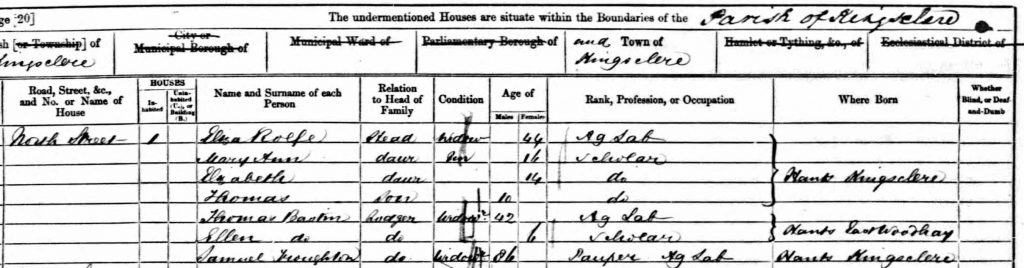 ge 20] The undermentioned Houses are situate within the Boundaries of the Parish of Kingsclere
sh [or Township] of City or Municipal Borough of Municipal Ward of Parliamentary Borough of and Town of Hamlet or Tything, &c., of Ecclesiastical District of
ingsclere Kingsclere
Road, Street, &c., and No. or Name of House HOUSES Inhabited Uninhabited (U.), or Building (B.) Name and Surname of each Person Relation to Head of Family Condition Age of Males Females Rank, Profession, or Occupation Where Born Whether Blind, or Deaf-and-Dumb
North Street 1 Eliza Rolfe Head Widow 44 Ag Lab
Mary Ann daur Un 16 Scholar
Elizabeth daur 14 do Hants Kingsclere
Thomas Son 10 do
Thomas Baston Lodger Widowr 42 Ag Lab
Ellen do do 6 Scholar Hants East Woodhay
Samuel Troughton do Widowr 86 Pauper Ag Lab Hants Kingsclere